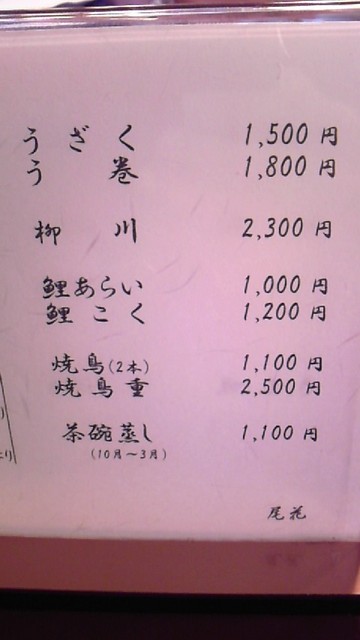 うざく 1,500 円
う巻 1,800 円
柳川 2,300 円
鯉あらい 1,000 円
鯉こく 1,200 円
焼鳥(2本) 1,100 円
焼鳥重 2,500 円
茶碗蒸し 1,100 円
(10月～3月)
尾花